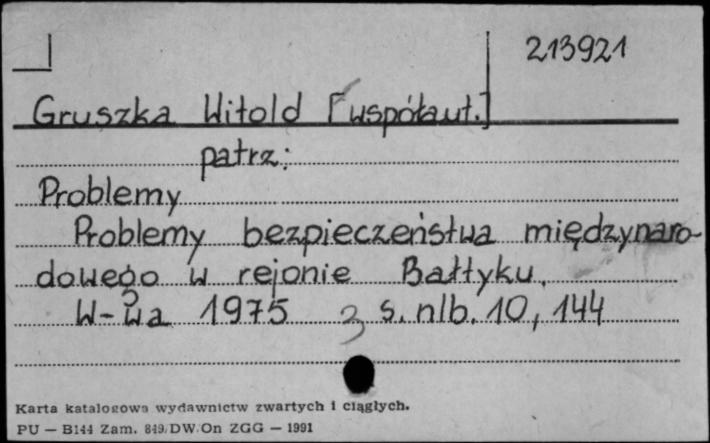 213921
Gruszka Witold [współaut.]
patrz:
Problemy
Problemy bezpieczeństwa międzynaro-
dowego w rejonie Bałtyku.
W-wa 1975 s. nlb. 10, 144
Karta katalogowa wydawnictw zwartych i ciągłych.
PU — B144 Zam. 849/DW/On ZGG — 1991